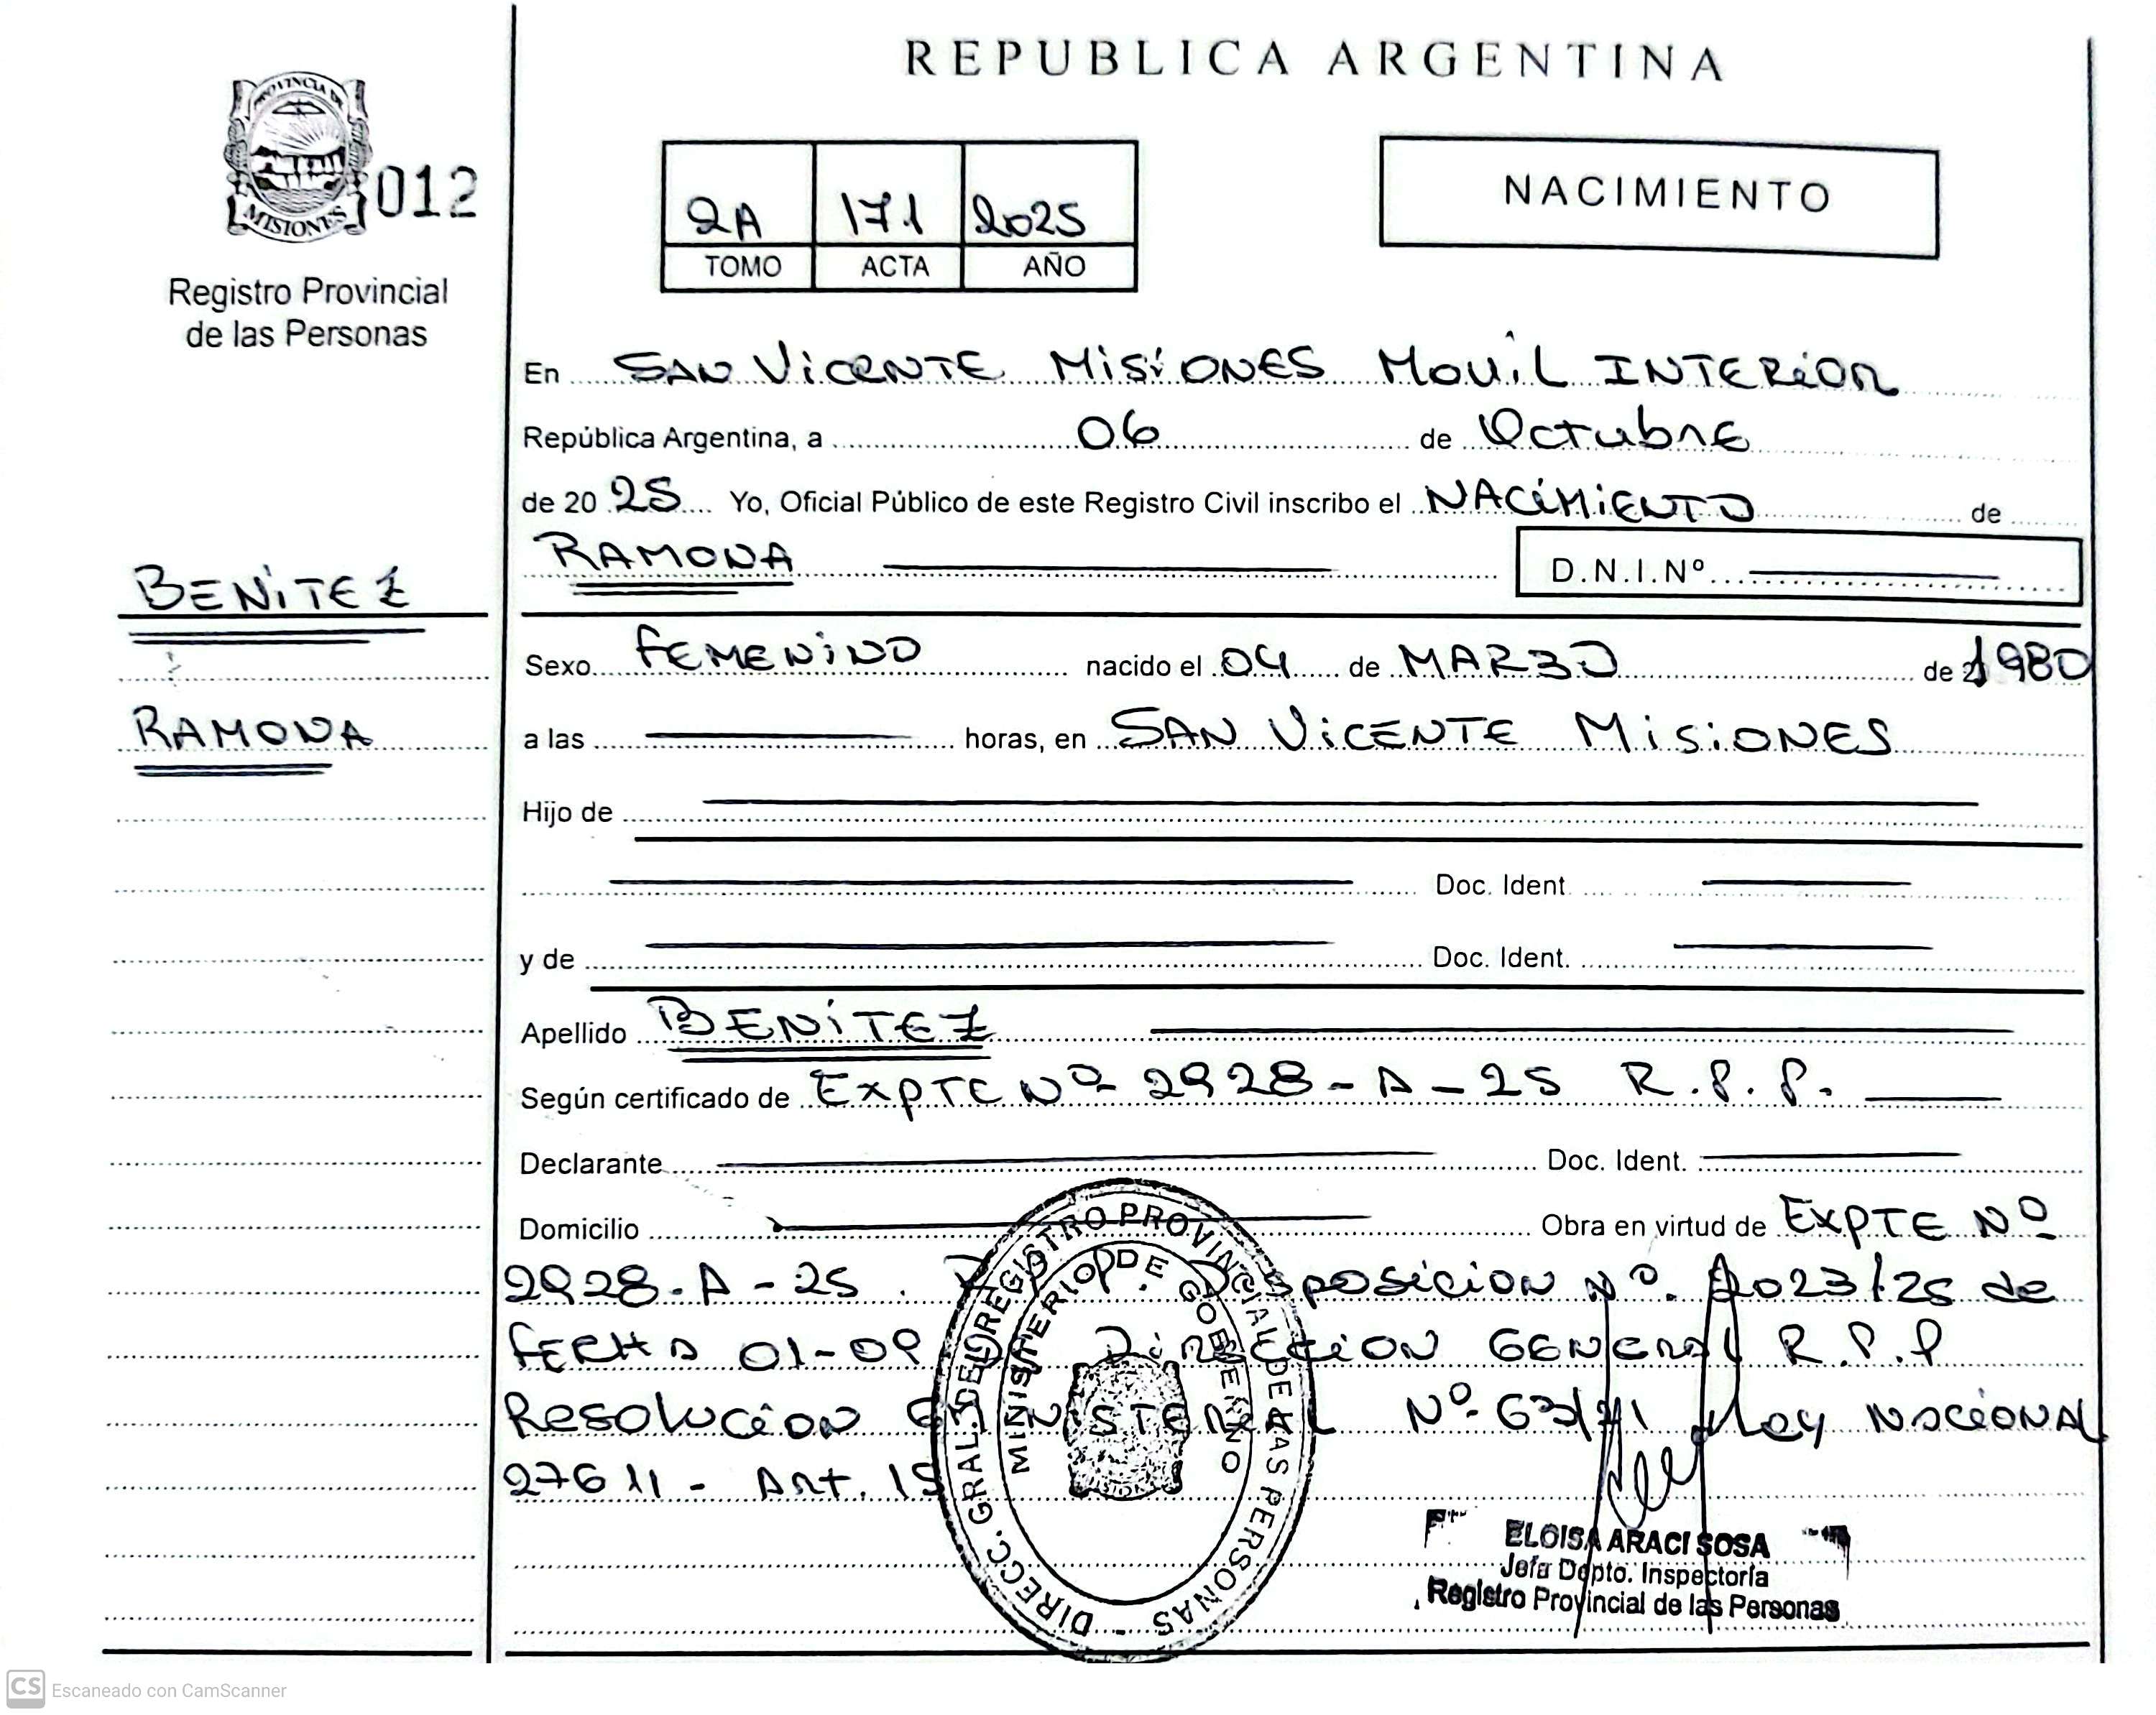 REPUBLICA ARGENTINA
PROVINCIA DE
MISIONES
012
Registro Provincial
de las Personas
2A 171 2025
TOMO ACTA AÑO
NACIMIENTO
En SAN VICENTE MISIONES MOVIL INTERIOR
República Argentina, a 06 de Octubre
de 20 25 Yo, Oficial Público de este Registro Civil inscribo el NACIMIENTO de
RAMONA D.N.I.Nº
BENITEZ
Sexo FEMENINO nacido el 04 de MARZO de 1980
RAMONA
a las horas, en SAN VICENTE MISIONES
Hijo de
Doc. Ident
y de Doc. Ident.
Apellido BENITEZ
Según certificado de EXPTE Nº 2928-A-25 R.P.P.
Declarante Doc. Ident.
Domicilio Obra en virtud de EXPTE Nº
2928-A-25. Disposicion Nº. 2023/25 de
FECHA 01-09 Direccion GENERAL R.P.P
Resolucion Nº Ley NACIONAL
27611 - Art. 15
DIRECC. GRAL. DEL REGISTRO PROVINCIAL DE LAS PERSONAS
MINISTERIO DE GOBIERNO
ELOISA ARACI SOSA
Jefa Depto. Inspectoría
Registro Provincial de las Personas
CS Escaneado con CamScanner